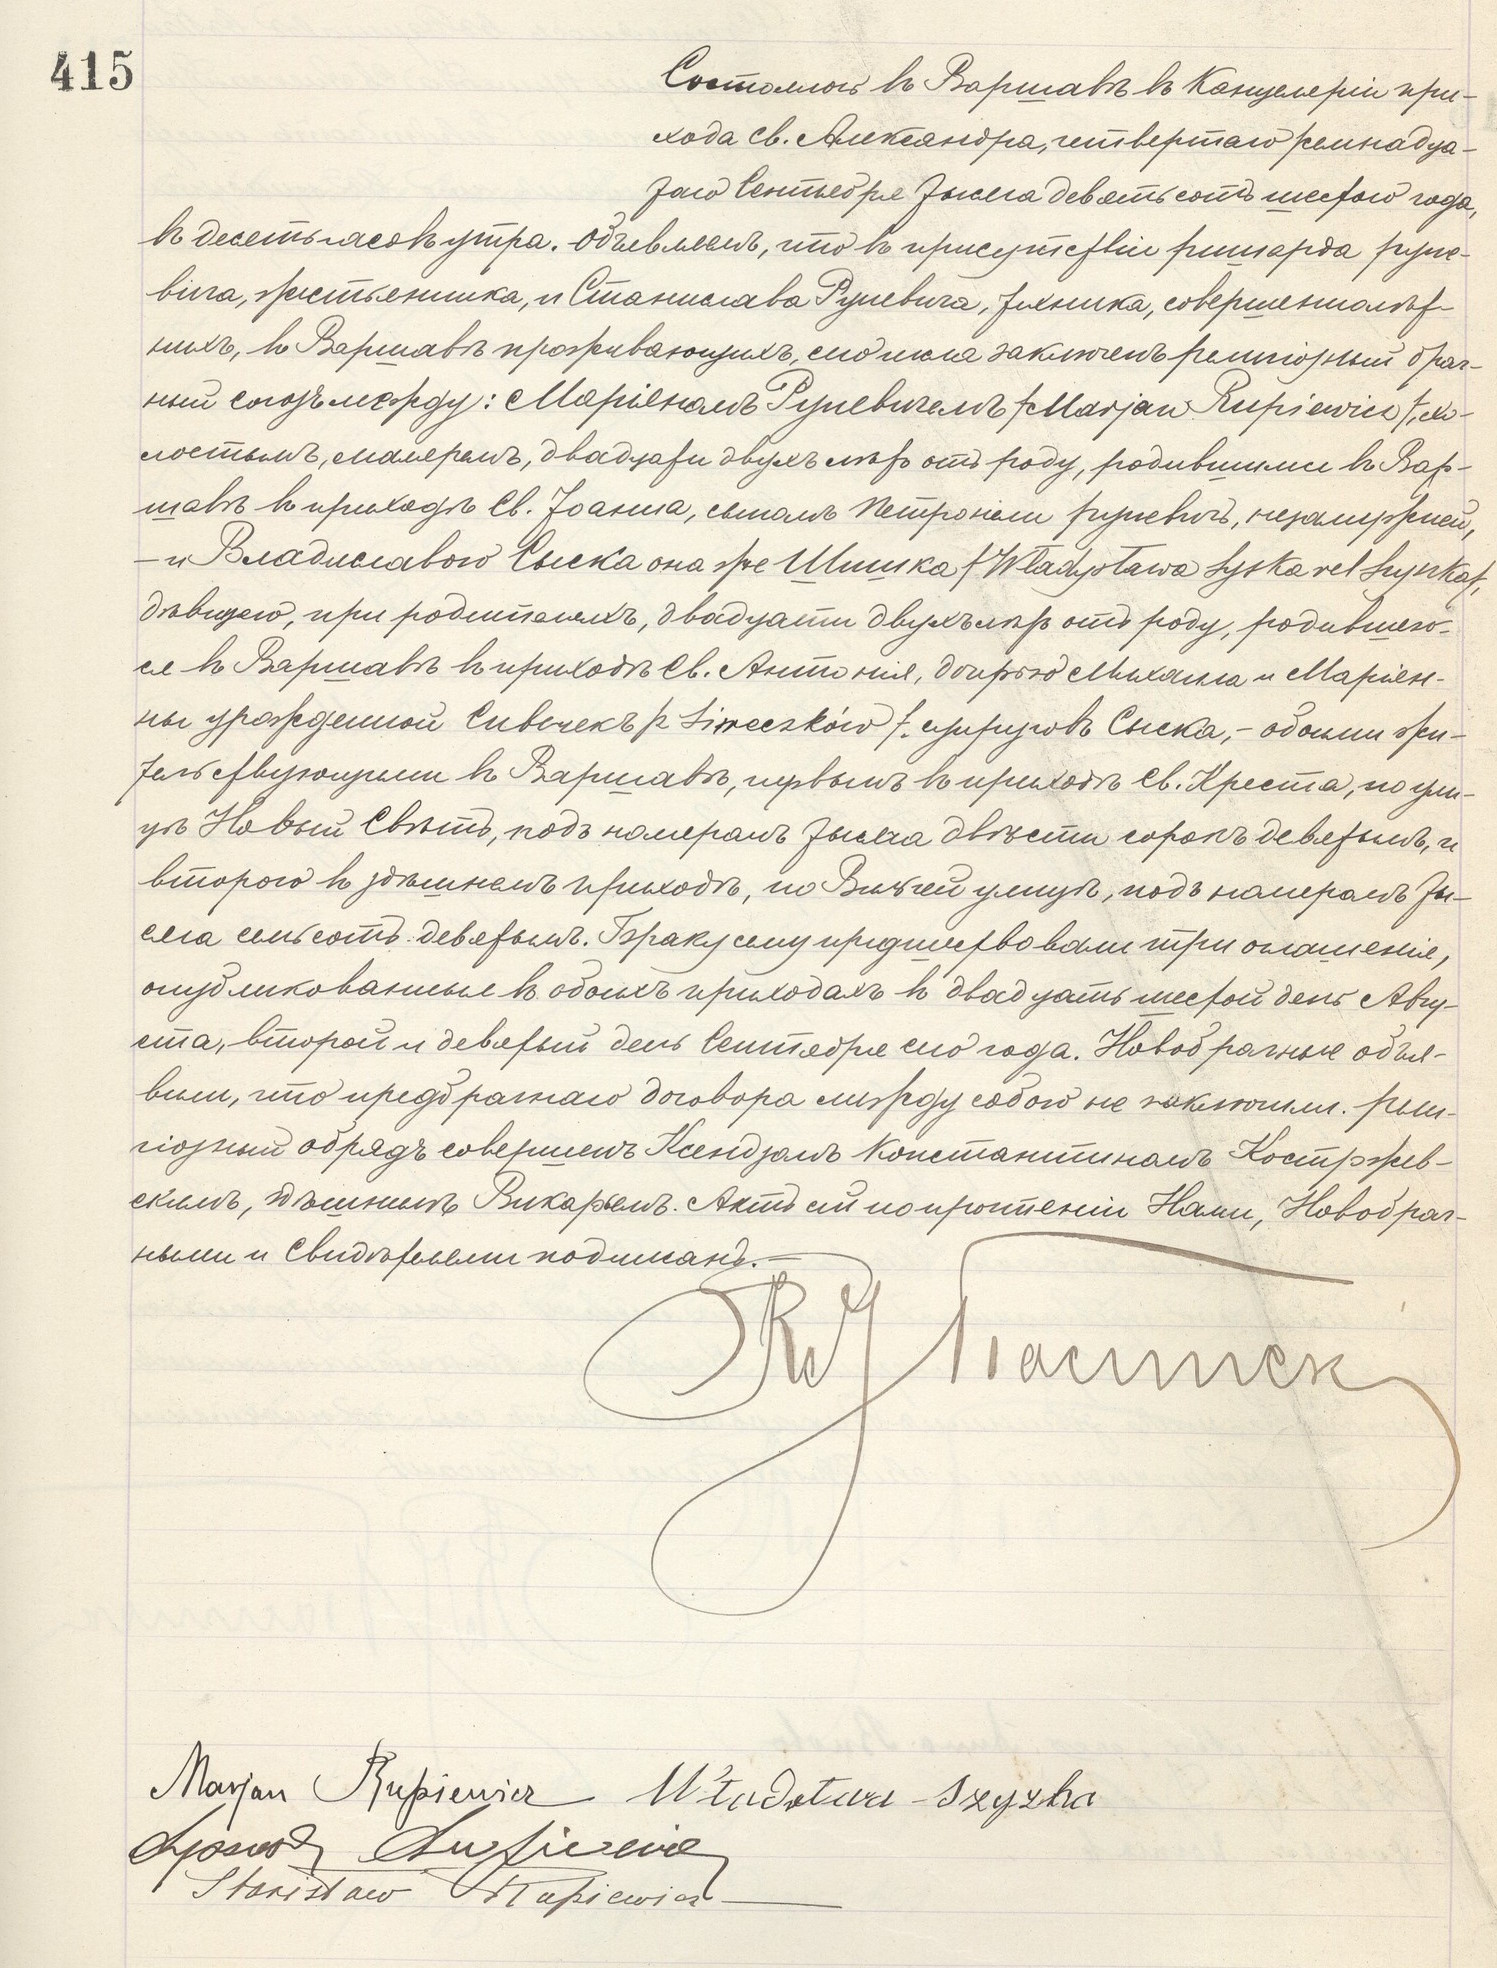 415
Состоялось въ Варшавѣ въ Канцеляріи при-
хода Св. Александра, четвертаго семнадца-
таго Сентября тысяча девятьсотъ шестого года,
въ десять часовъ утра. Объявляемъ, что въ присутствіи Ришарда Рупе-
вича, жестяника, и Станислава Рупевича, техника, совершеннолѣт-
нихъ, въ Варшавѣ проживающихъ, сего числа заключенъ религіозный брач-
ный союзъ между: Маріяномъ Рупевичемъ /Marjan Rupiewicz/, хо-
лостымъ, маляремъ, двадцати двухъ лѣтъ отъ роду, родившимся въ Вар-
шавѣ въ приходѣ Св. Іоанна, сыномъ Петронели Рупевичъ, незамужней,
– и Владиславою Сыска она же Шишка /Władysława Syska vel Szyszka/,
дѣвицею, при родителяхъ, двадцати двухъ лѣтъ отъ роду, родившею-
ся въ Варшавѣ въ приходѣ Св. Антонія, дочерью Михаила и Маріян-
ны урожденной Сивечекъ /z Siweczków/ супруговъ Сыска, – обоими жи-
тельствующими въ Варшавѣ, первымъ въ приходѣ Св. Креста, по ули-
цѣ Новый Свѣтъ, подъ номеромъ тысяча двѣсти сорокъ девятымъ, и
второю въ здѣшнемъ приходѣ, по улицѣ, подъ номеромъ ты-
сяча семьсотъ девятымъ. Браку сему предшествовали три оглашенія,
опубликованныя въ обоихъ приходахъ въ двадцать шестой день Авгу-
ста, второй и девятый день Сентября сего года. Новобрачные объя-
вили, что предбрачнаго договора между собою не заключили. Рели-
гіозный обрядъ совершенъ Ксендзомъ Константиномъ Костржев-
скимъ, здѣшнимъ Викаріемъ. Актъ сей по прочтеніи Нами, Новобрач-
ными и Свидѣтелями подписанъ. –
Marjan Rupiewicz Władysława Szyszka
Stanisław Rupiewicz